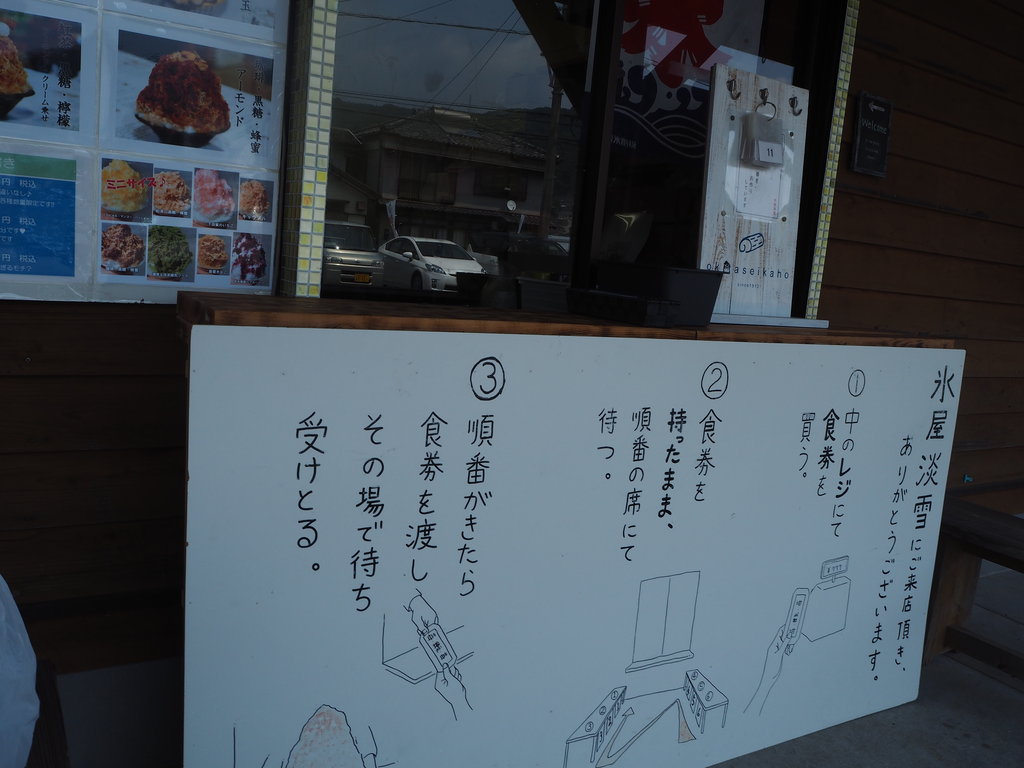 氷屋淡雪にご来店頂き、
ありがとうございます。
①
中のレジにて
食券を
買う。
②
食券を
持ったまま、
順番の席にて
待つ。
③
順番がきたら
食券を渡し
その場で待ち
受けとる。
黒糖・蜂蜜
アーモンド
黒糖・檸檬
クリーム乗せ
ミニサイズ♪
円 税込
円 税込
円 税込
11
Welcome